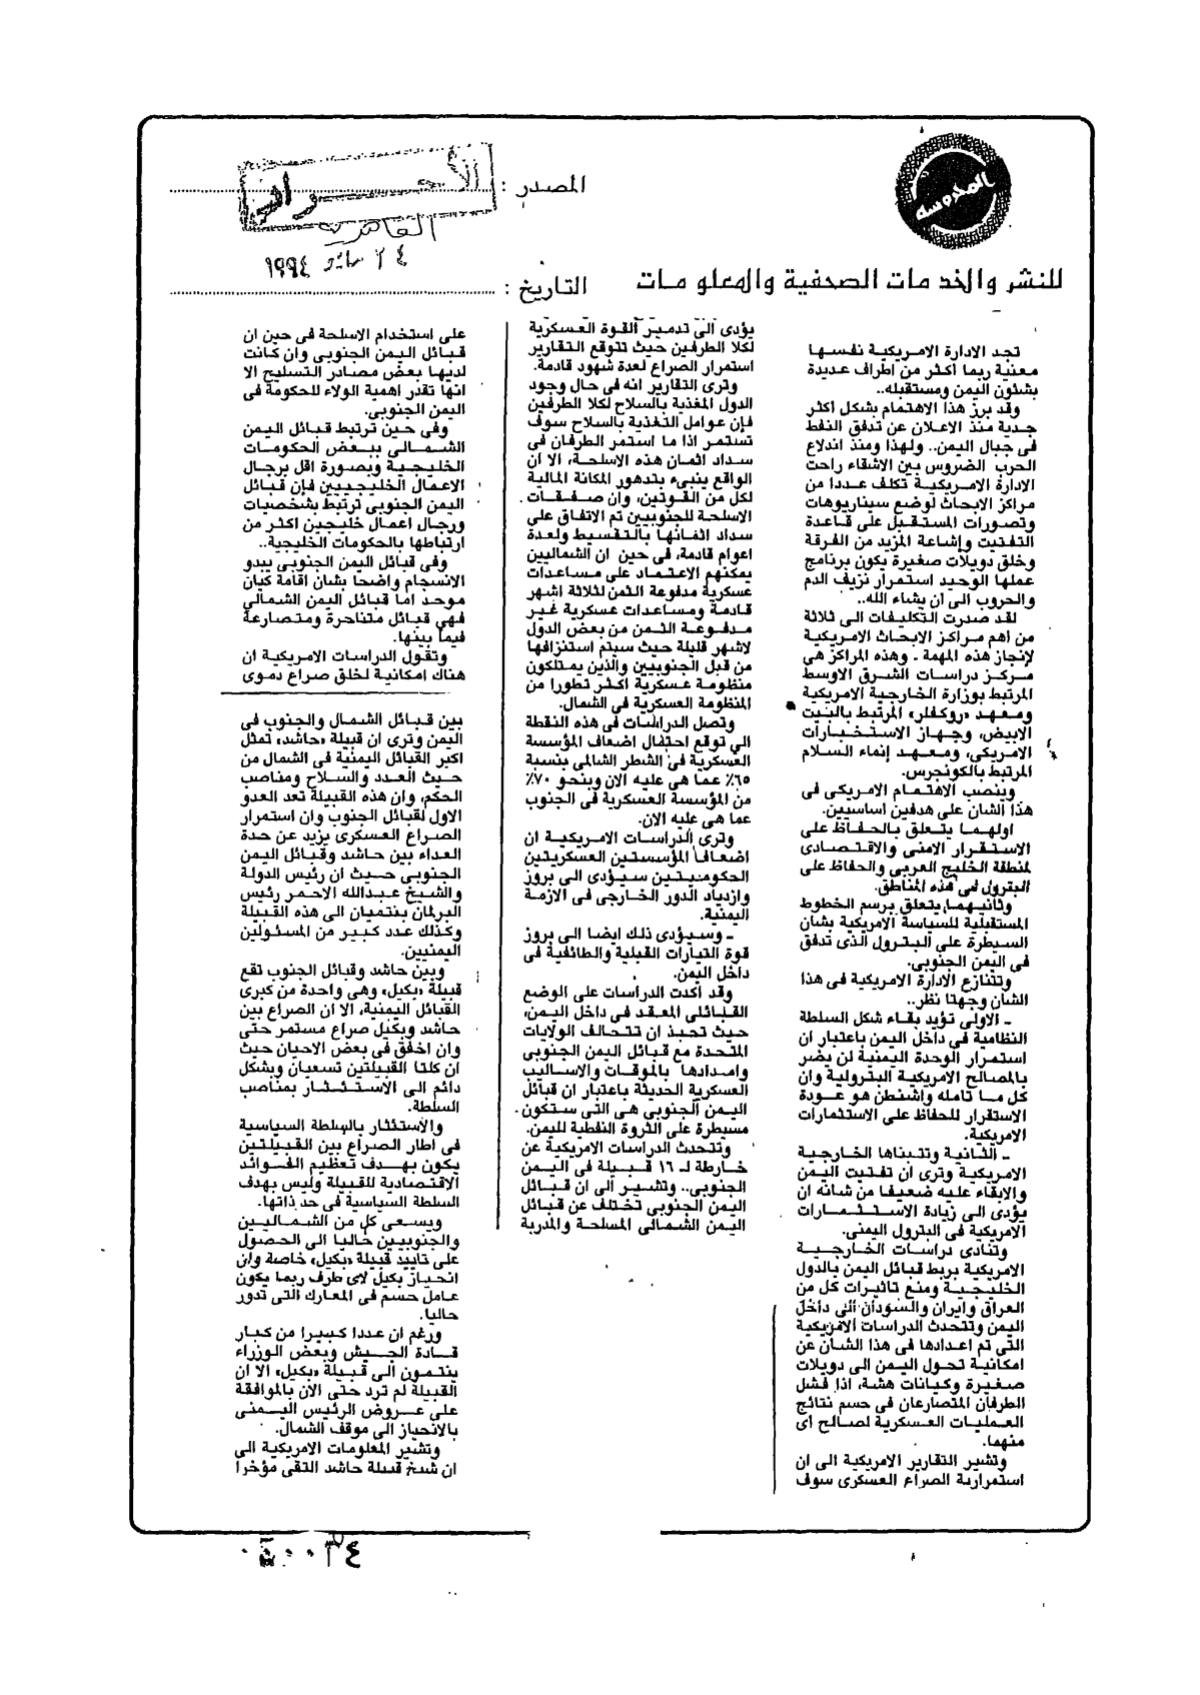 المدرسة
المصدر :
الأحرار
القاهرة
٢٤ مايو ١٩٩٤
للنشر والخدمات الصحفية والمعلومات
التاريخ :
تجد الادارة الامريكية نفسها
معنية ربما اكثر من اطراف عديدة
بشئون اليمن ومستقبله..
وقد برز هذا الاهتمام بشكل اكثر
جدية منذ الاعلان عن تدفق النفط
فى جبال اليمن.. ولهذا ومنذ اندلاع
الحرب الضروس بين الاشقاء راحت
الادارة الامريكية تكلف عددا من
مراكز الابحاث لوضع سيناريوهات
وتصورات المستقبل على قاعدة
التفتيت وإشاعة المزيد من الفرقة
وخلق دويلات صغيرة يكون برنامج
عملها الوحيد استمرار نزيف الدم
والحروب الى ان يشاء الله..
لقد صدرت التكليفات الى ثلاثة
من اهم مراكز الابحاث الامريكية
لإنجاز هذه المهمة . وهذه المراكز هى
مركز دراسات الشرق الاوسط
المرتبط بوزارة الخارجية الامريكية
ومعهد «روكفلر» المرتبط بالبيت
الابيض، وجهاز الاستخبارات
الامريكى، ومعهد إنماء السلام
المرتبط بالكونجرس.
وينصب الاهتمام الامريكى فى
هذا الشان على هدفين اساسيين.
اولهما يتعلق بالحفاظ على
الاستقرار الامنى والاقتصادى
لمنطقة الخليج العربى والحفاظ على
البترول فى هذه المناطق.
وثانيهما يتعلق برسم الخطوط
المستقبلية للسياسة الامريكية بشان
السيطرة على البترول الذى تدفق
فى اليمن الجنوبى.
وتتنازع الادارة الامريكية فى هذا
الشان وجهتا نظر..
ـ الاولى تؤيد بقاء شكل السلطة
النظامية فى داخل اليمن باعتبار ان
استمرار الوحدة اليمنية لن يضر
بالمصالح الامريكية البترولية وان
كل ما تامله واشنطن هو عودة
الاستقرار للحفاظ على الاستثمارات
الامريكية.
ـ الثانية وتتبناها الخارجية
الامريكية وترى ان تفتيت اليمن
والابقاء عليه ضعيفا من شانه ان
يؤدى الى زيادة الاستثمارات
الامريكية فى البترول اليمنى.
وتنادى دراسات الخارجية
الامريكية بربط قبائل اليمن بالدول
الخليجية ومنع تاثيرات كل من
العراق وايران والسودان الى داخل
اليمن وتتحدث الدراسات الامريكية
التى تم اعدادها فى هذا الشان عن
امكانية تحول اليمن الى دويلات
صغيرة وكيانات هشة، اذا فشل
الطرفان المتصارعان فى حسم نتائج
العمليات العسكرية لصالح اى
منهما.
وتشير التقارير الامريكية الى ان
استمرارية الصراع العسكرى سوف
يؤدى الى تدمير القوة العسكرية
لكلا الطرفين حيث تتوقع التقارير
استمرار الصراع لعدة شهود قادمة.
وترى التقارير انه فى حال وجود
الدول المغذية بالسلاح لكلا الطرفين
فإن عوامل التغذية بالسلاح سوف
تستمر اذا ما استمر الطرفان فى
سداد اثمان هذه الاسلحة، الا ان
الواقع ينبىء بتدهور المكانة المالية
لكل من القوتين، وان صفقات
الاسلحة للجنوبيين تم الاتفاق على
سداد اثمانها بالتقسيط ولعدة
اعوام قادمة، فى حين ان الشماليين
يمكنهم الاعتماد على مساعدات
عسكرية مدفوعة الثمن لثلاثة اشهر
قادمة ومساعدات عسكرية غير
مدفوعة الثمن من بعض الدول
لاشهر قليلة حيث سيتم استنزافها
من قبل الجنوبيين والذين يمتلكون
منظومة عسكرية اكثر تطورا من
المنظومة العسكرية فى الشمال.
وتصل الدراسات فى هذه النقطة
الى توقع احتمال اضعاف المؤسسة
العسكرية فى الشطر الشمالى بنسبة
٦٥٪ عما هى عليه الان وبنحو ٧٠٪
من المؤسسة العسكرية فى الجنوب
عما هى عليه الان.
وترى الدراسات الامريكية ان
اضعاف المؤسستين العسكريتين
الحكوميتين سيؤدى الى بروز
وازدياد الدور الخارجى فى الازمة
اليمنية.
ـ وسيؤدى ذلك ايضا الى بروز
قوة التيارات القبلية والطائفية فى
داخل اليمن.
وقد اكدت الدراسات على الوضع
القبائلى المعقد فى داخل اليمن،
حيث تحبذ ان تتحالف الولايات
المتحدة مع قبائل اليمن الجنوبى
وامدادها بالموقات والاساليب
العسكرية الحديثة باعتبار ان قبائل
اليمن الجنوبى هى التى ستكون
مسيطرة على الثروة النفطية لليمن.
وتتحدث الدراسات الامريكية عن
خارطة لـ ١٦ قبيلة فى اليمن
الجنوبى.. وتشير الى ان قبائل
اليمن الجنوبى تختلف عن قبائل
اليمن الشمالى المسلحة والمدربة
على استخدام الاسلحة فى حين ان
قبائل اليمن الجنوبى وان كانت
لديها بعض مصادر التسليح الا
انها تقدر اهمية الولاء للحكومة فى
اليمن الجنوبى.
وفى حين ترتبط قبائل اليمن
الشمالى ببعض الحكومات
الخليجية وبصورة اقل برجال
الاعمال الخليجيين فإن قبائل
اليمن الجنوبى ترتبط بشخصيات
ورجال اعمال خليجين اكثر من
ارتباطها بالحكومات الخليجية..
وفى قبائل اليمن الجنوبى يبدو
الانسجام واضحا بشان اقامة كيان
موحد اما قبائل اليمن الشمالى
فهى قبائل متناحرة ومتصارعة
فيما بينها.
وتقول الدراسات الامريكية ان
هناك امكانية لخلق صراع دموى
بين قبائل الشمال والجنوب فى
اليمن وترى ان قبيلة «حاشد» تمثل
اكبر القبائل اليمنية فى الشمال من
حيث العدد والسلاح ومناصب
الحكم، وان هذه القبيلة تعد العدو
الاول لقبائل الجنوب وان استمرار
الصراع العسكرى يزيد عن حدة
العداء بين حاشد وقبائل اليمن
الجنوبى حيث ان رئيس الدولة
والشيخ عبدالله الاحمر رئيس
البرلمان ينتميان الى هذه القبيلة
وكذلك عدد كبير من المسئولين
اليمنيين.
وبين حاشد وقبائل الجنوب تقع
قبيلة «بكيل» وهى واحدة من كبرى
القبائل اليمنية، الا ان الصراع بين
حاشد وبكيل صراع مستمر حتى
وان اخفق فى بعض الاحيان حيث
ان كلتا القبيلتين تسعيان وبشكل
دائم الى الاستئثار بمناصب
السلطة.
والاستئثار بالسلطة السياسية
فى اطار الصراع بين القبيلتين
يكون بهدف تعظيم الفوائد
الاقتصادية للقبيلة وليس بهدف
السلطة السياسية فى حد ذاتها.
ويسعى كل من الشماليين
والجنوبيين حاليا الى الحصول
على تاييد قبيلة «بكيل» خاصة وان
انحياز بكيل لاى طرف ربما يكون
عامل حسم فى المعارك التى تدور
حاليا.
ورغم ان عددا كبيرا من كبار
قادة الجيش وبعض الوزراء
ينتمون الى قبيلة «بكيل» الا ان
القبيلة لم ترد حتى الان بالموافقة
على عروض الرئيس اليمنى
بالانحياز الى موقف الشمال.
وتشير المعلومات الامريكية الى
ان شيخ قبيلة حاشد التقى مؤخرا